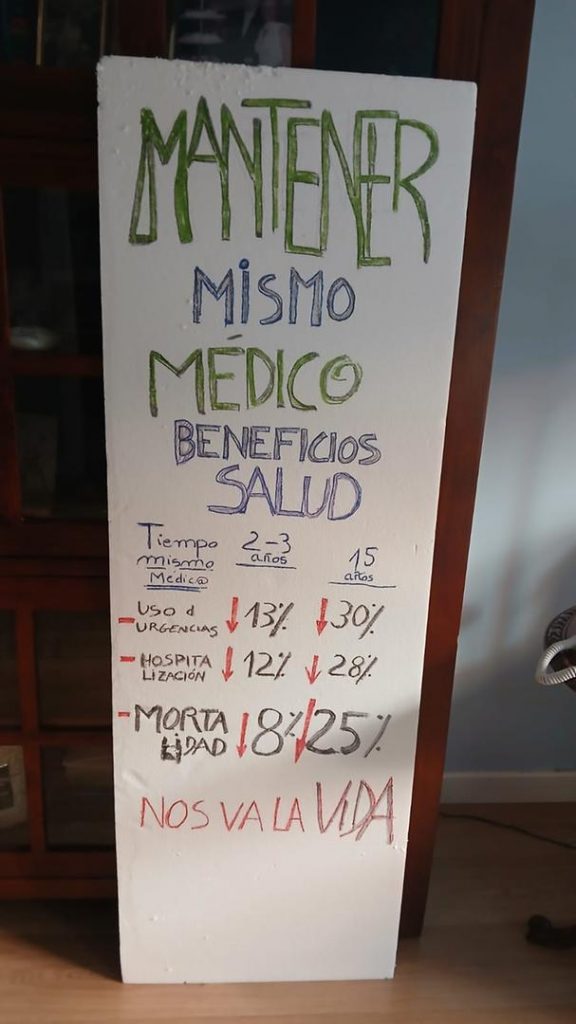 MANTENER
MISMO
MÉDICO
BENEFICIOS
SALUD
Tiempo mismo Médic@ 2-3 años 15 años
- USO d URGENCIAS ↓ 13% ↓ 30%
- HOSPITALIZACIÓN ↓ 12% ↓ 28%
- MORTALIDAD ↓ 8% ↓ 25%
NOS VA LA VIDA